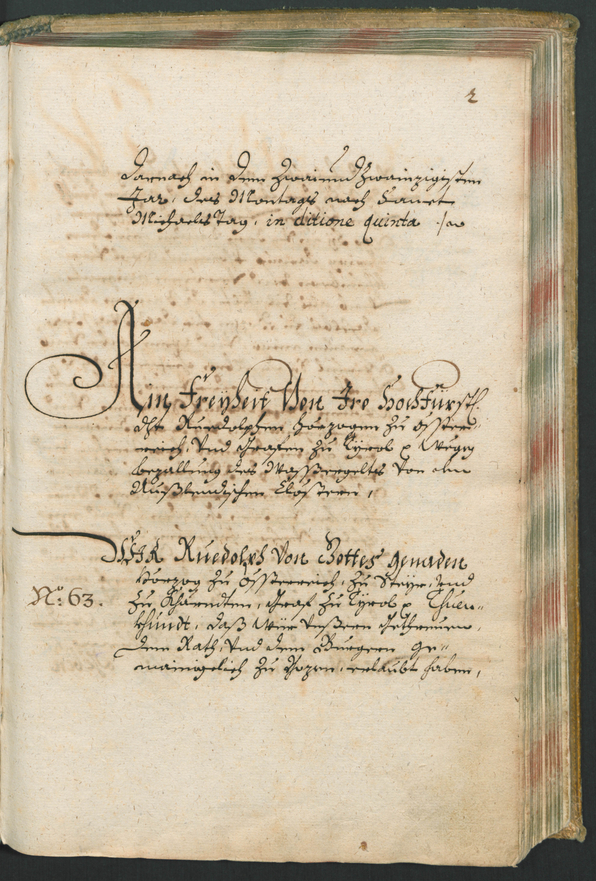 2
darnach in dem Zwaiund Zwainzigisten
Jar, des Montags nach Sanct
Michaels Tag, in ditione quinta
Ain Freyheit Von Ire Hochfürstl.
dht. Ruedolphen Herzogen zu Össter-
reich, Vnd Grafen zu Tyrol p. Wegen
bezallung des Von den
Außlendischen Clösstern,
WIR Ruedolph Von Gottes genaden
Herzog zu Össterreich, zu Steyr, Vnd
No: 63.
zu Khärndten, Graf zu Tyrol p. Thuen
khundt, daß Wür Vnsern Gethreuen,
dem Rath, Vnd den Burgern ge-
mainigelich zu Pozen, erlaubt haben,